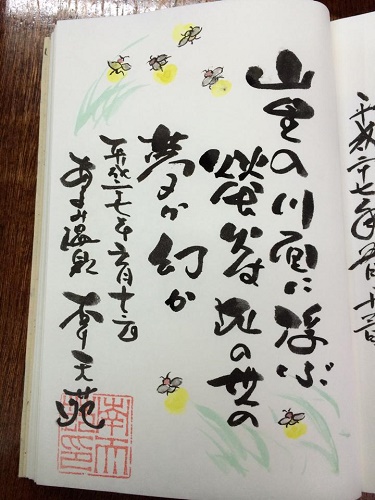 山里の川面に浮ぶ
蛍火は此の世の
夢か幻か
平成二十七年六月十三日
あまみ温泉 南天苑
平成二十七年